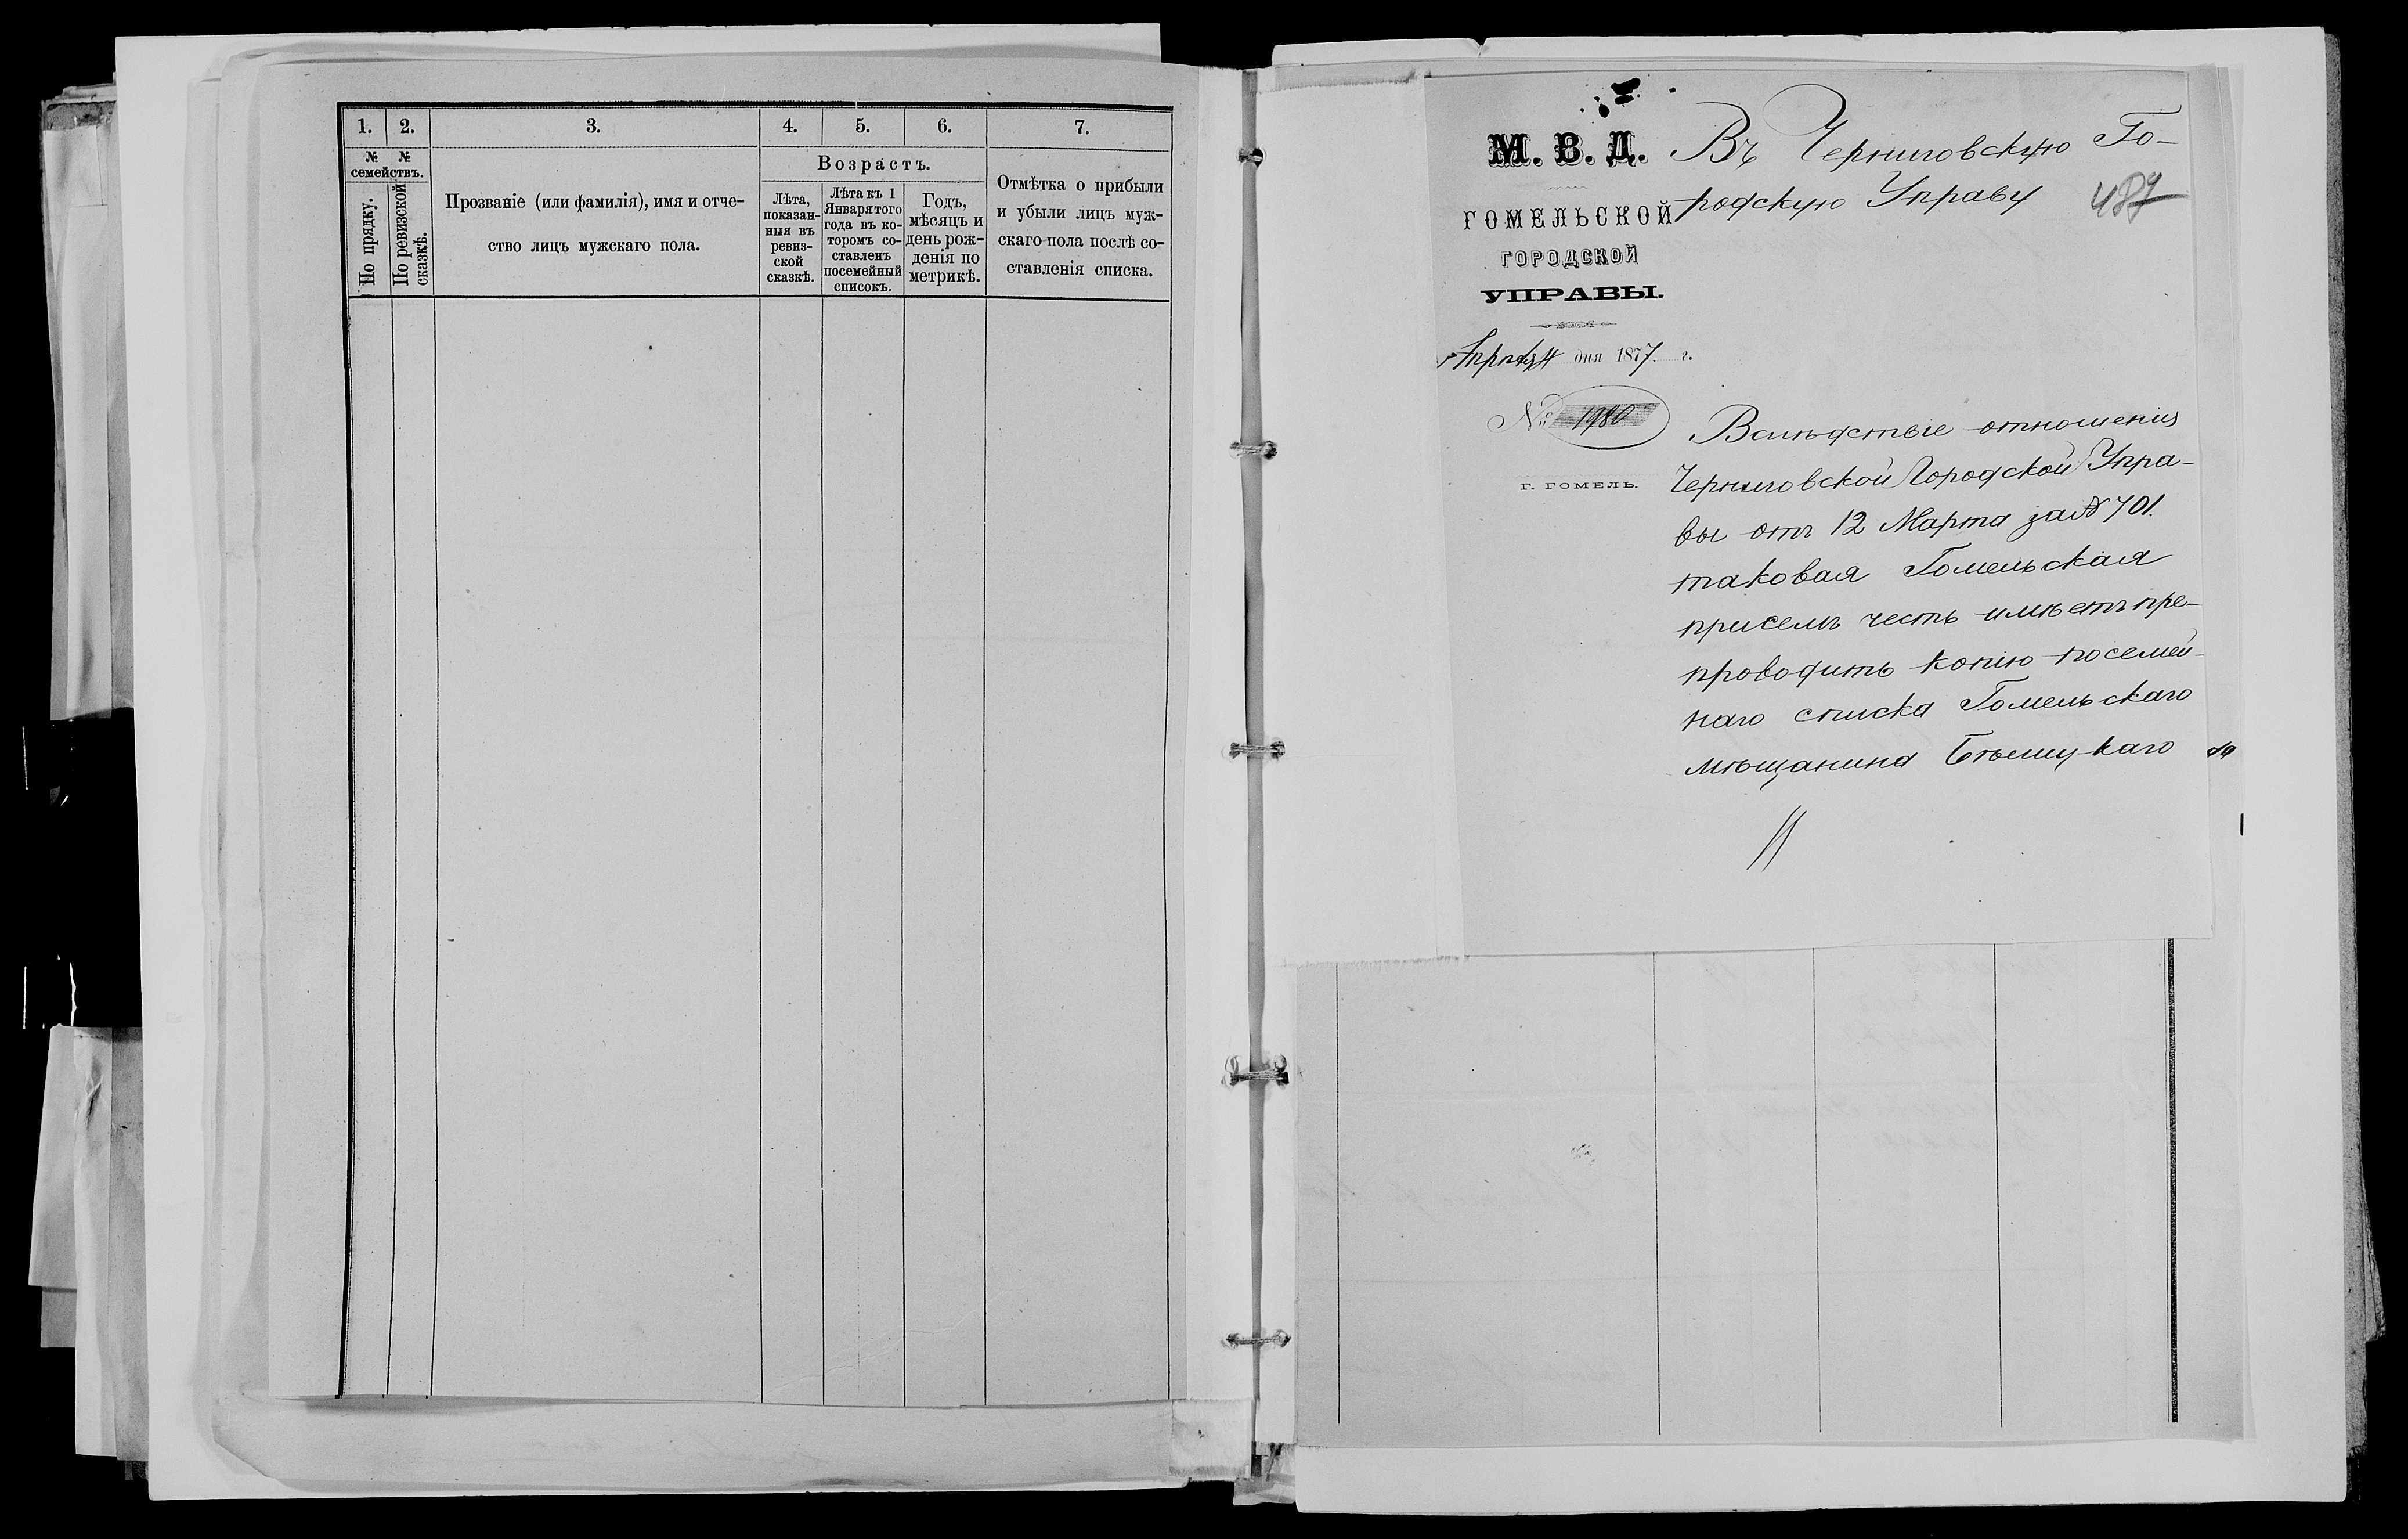 1. 2. 3. 4. 5. 6. 7.
№ №
семействъ.
По прядку.
По ревизской
сказкѣ.
Прозваніе (или фамилія), имя и отче-
ство лицъ мужскаго пола.
Возрастъ.
Лѣта,
показан-
ныя въ
ревиз-
ской
сказкѣ.
Лѣта къ 1
Января того
года въ ко-
торомъ со-
ставленъ
посемейный
списокъ.
Годъ,
мѣсяцъ и
день рож-
денія по
метрикѣ.
Отмѣтка о прибыли
и убыли лицъ муж-
скаго пола послѣ со-
ставленія списка.
М. В. Д.
ГОМЕЛЬСКОЙ
ГОРОДСКОЙ
УПРАВЫ.
дня 1877. г.
№ 1980
Г. ГОМЕЛЬ.
Въ Черниговскую Го-
родскую Управу
489
Вслѣдствіе отношенія
Черниговской Городской Упра-
вы отъ 12 Марта за № 701.
таковая Гомельская
присемъ честь имѣетъ пре-
проводить копію посемей-
наго списка Гомельскаго
мѣщанина